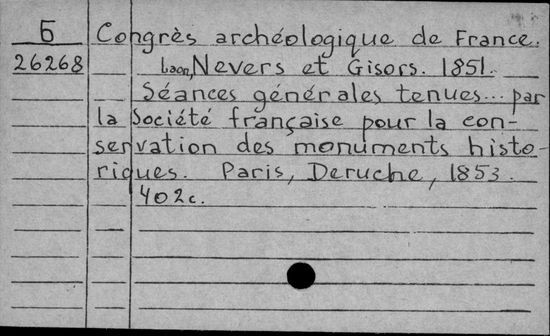 Б Congrès archéologique de France.
26268 Laon, Nevers et Gisors. 1851.
Séances générales tenues... par
la Société française pour la con-
servation des monuments histo-
riques. Paris, Deruche, 1853.
402c.